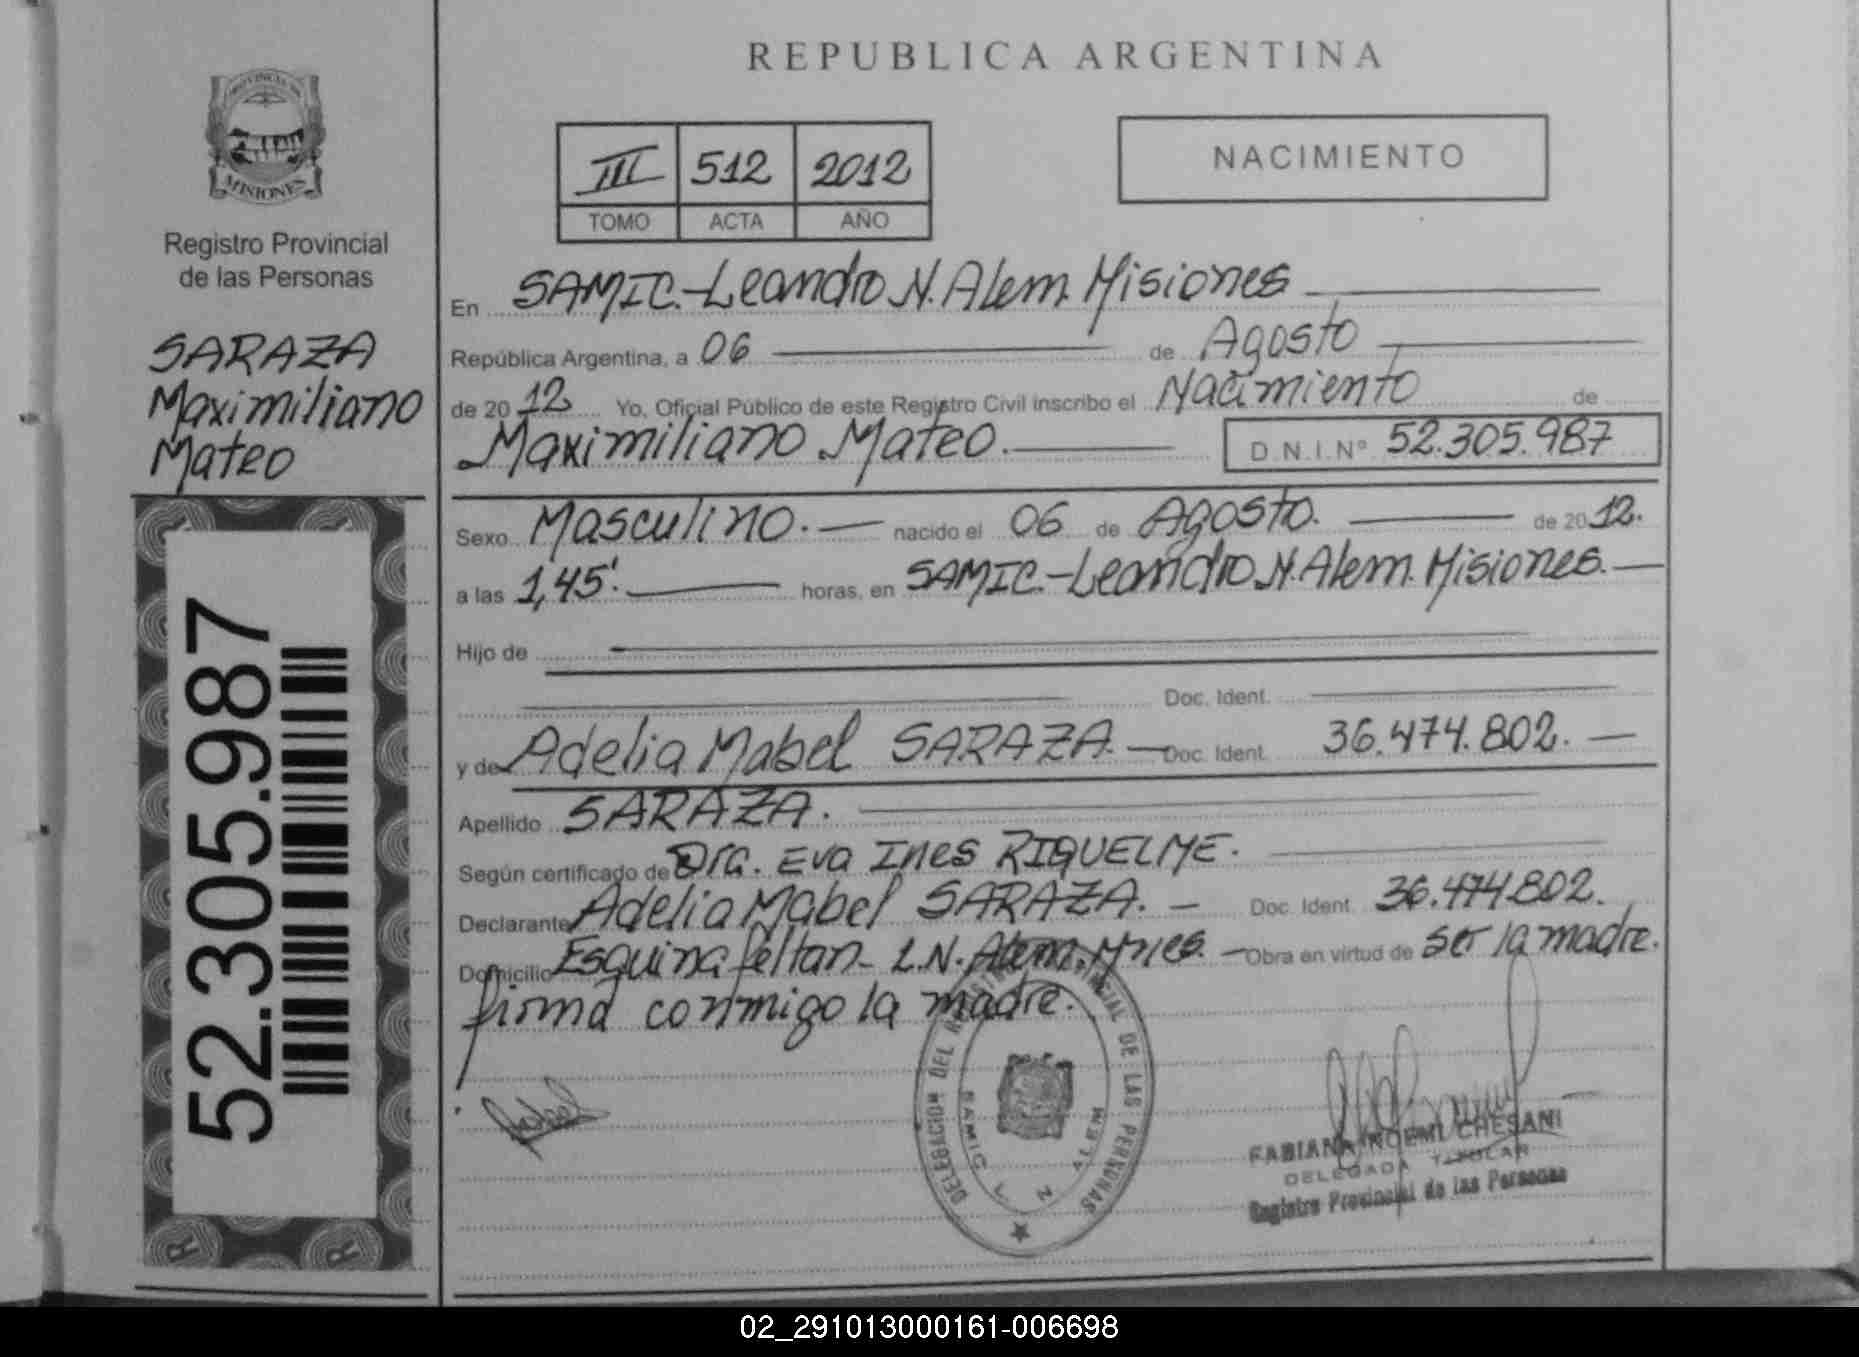 PROVINCIA DE
MISIONES
Registro Provincial
de las Personas
SARAZA
Maximiliano
Mateo
52.305.987
REPUBLICA ARGENTINA
III 512 2012
TOMO ACTA AÑO
NACIMIENTO
En SAMIC.-Leandro N. Alem. Misiones
República Argentina, a 06 de Agosto
de 2012 Yo, Oficial Público de este Registro Civil inscribo el Nacimiento de
Maximiliano Mateo. D.N.I.Nº 52.305.987
Sexo Masculino. nacido el 06 de Agosto. de 2012.
a las 1,45'. horas, en SAMIC.-Leandro N. Alem. Misiones.
Hijo de
Doc. Ident.
y de Adelia Mabel SARAZA. Doc. Ident. 36.474.802.
Apellido SARAZA.
Según certificado de Dra. Eva Ines RIQUELME.
Declarante Adelia Mabel SARAZA. Doc. Ident. 36.474.802.
Domicilio Esquina feltan- L.N. Alem. Mnes. Obra en virtud de ser la madre.
firma conmigo la madre.
DELEGACION DEL REGISTRO PROVINCIAL DE LAS PERSONAS
SAMIC L N ALEM
FABIANA NOEMI CHESANI
DELEGADA TITULAR
Registro Provincial de las Personas
02_291013000161-006698